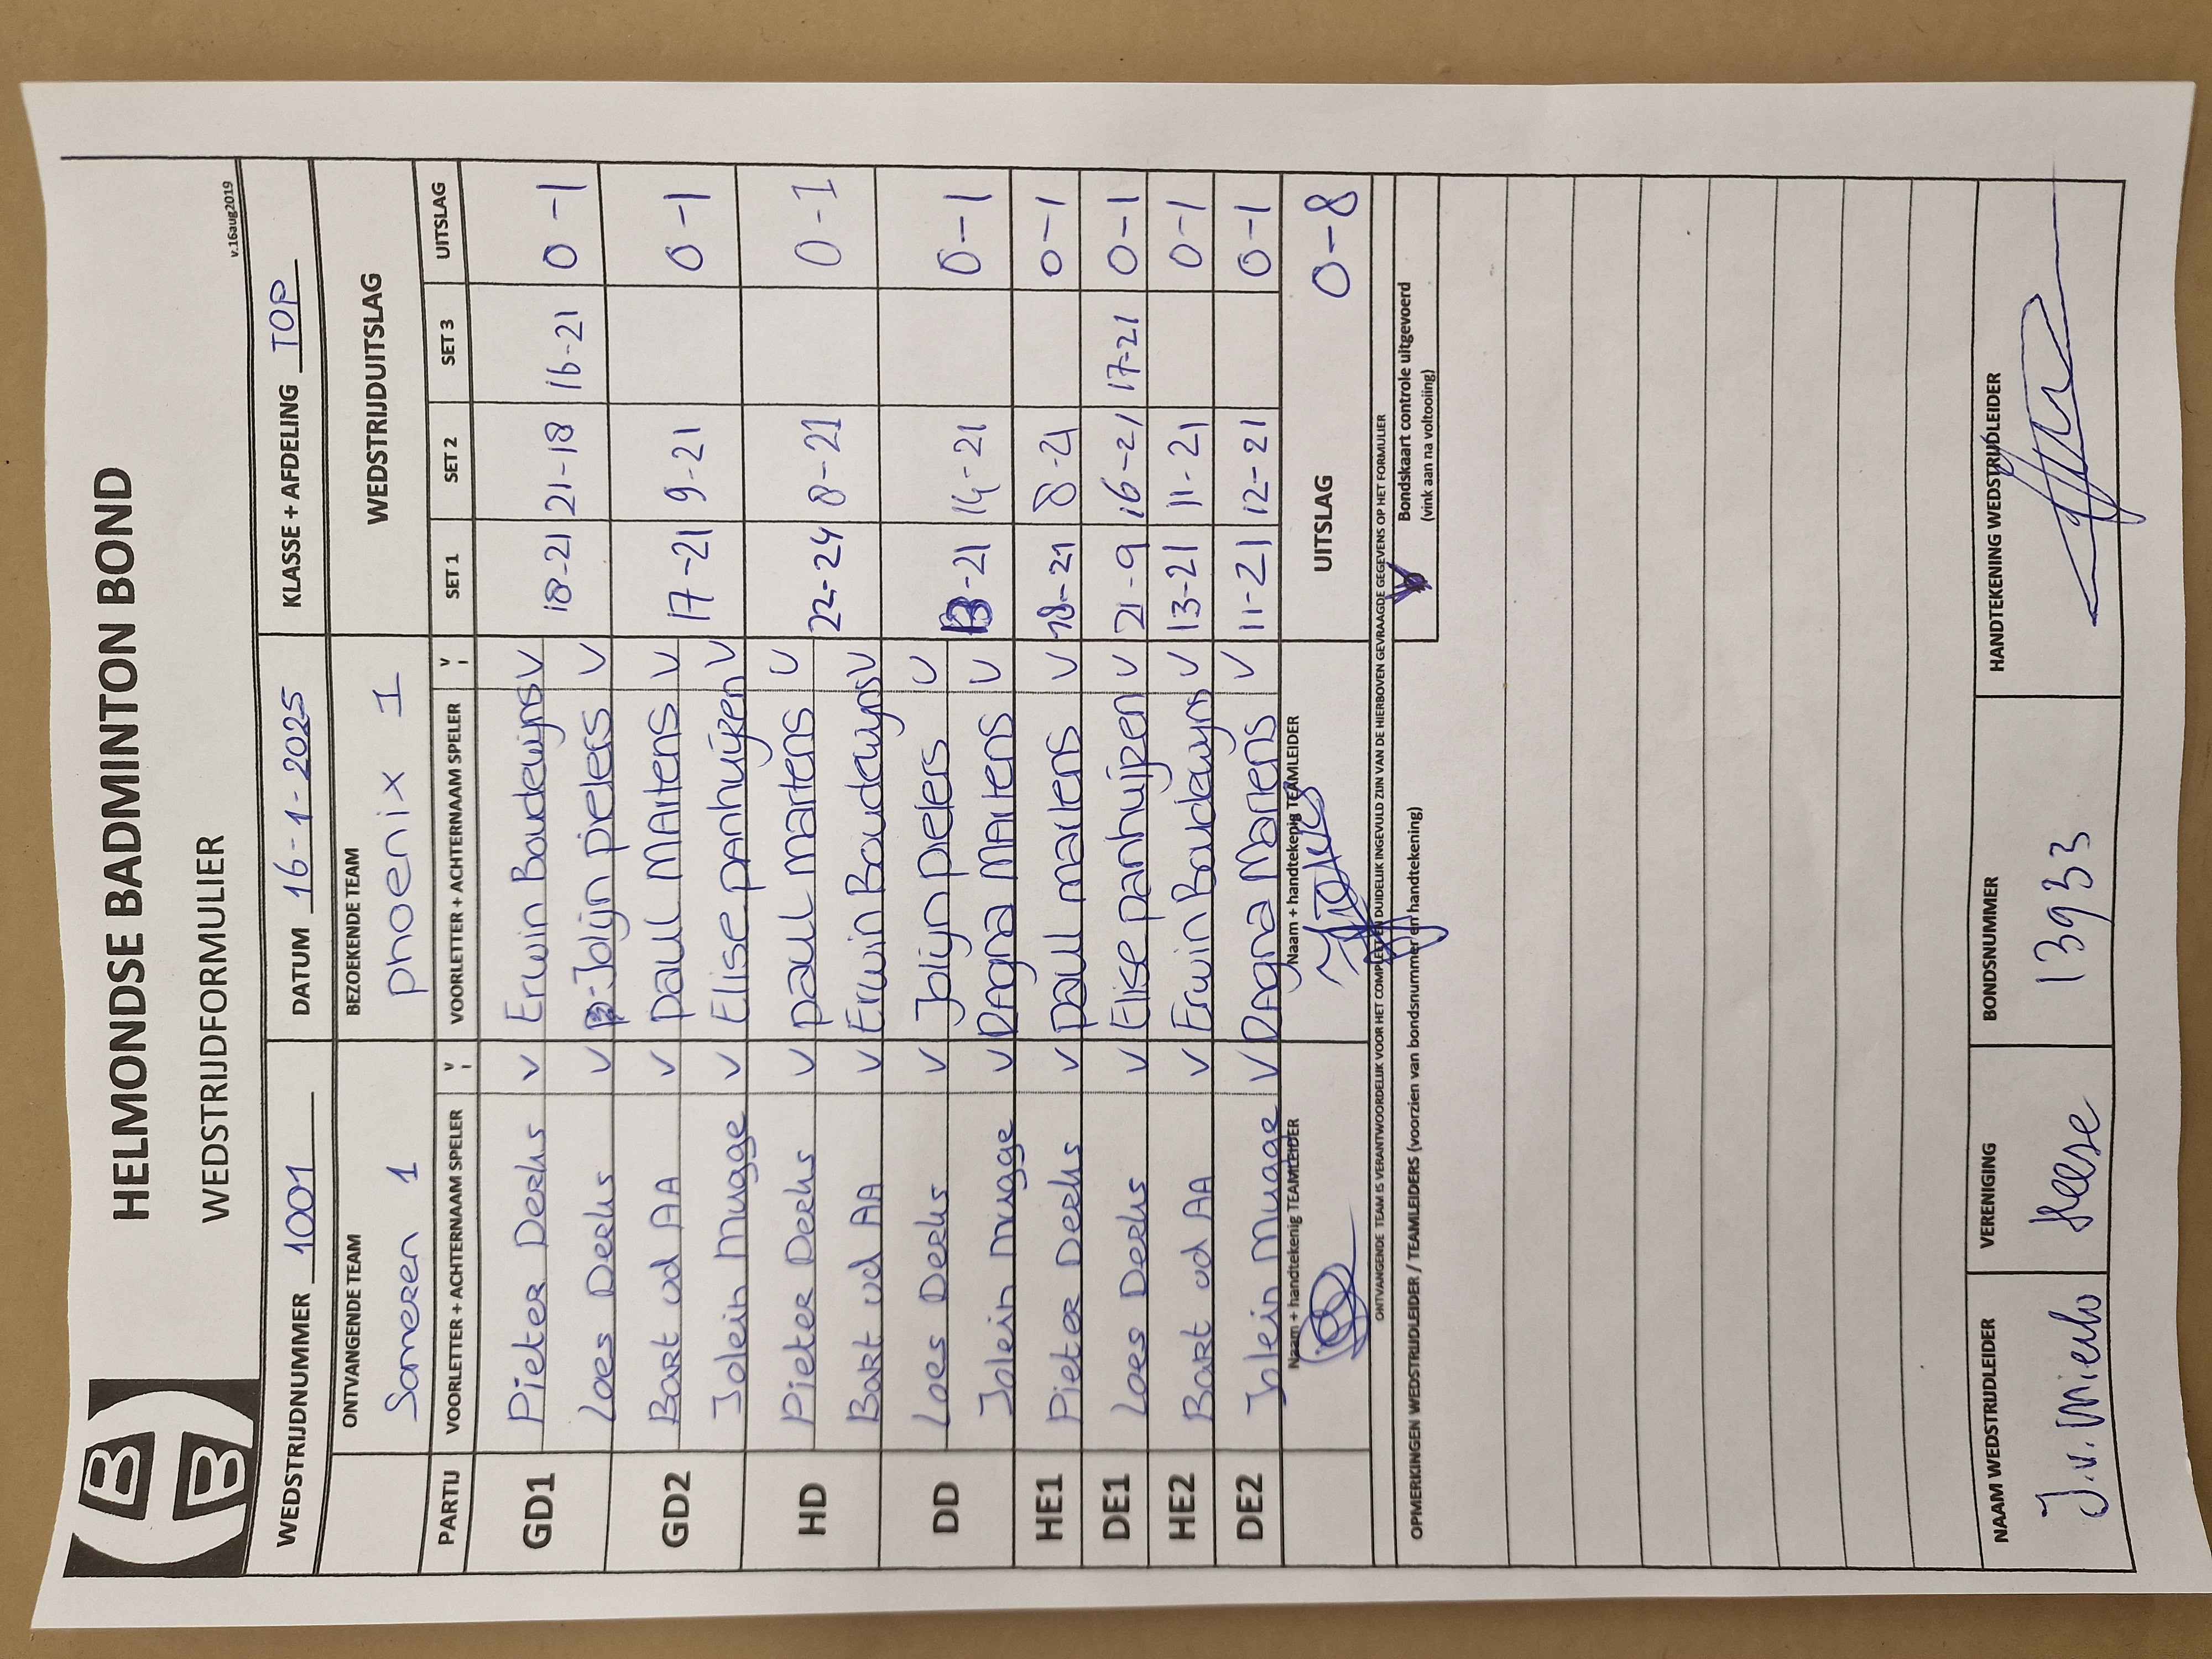 HELMONDSE BADMINTON BOND
WEDSTRIJDFORMULIER
v.16aug2019
WEDSTRIJDNUMMER 1001 DATUM 16-1-2025 KLASSE + AFDELING TOP
ONTVANGENDE TEAM BEZOEKENDE TEAM WEDSTRIJDUITSLAG
Someren 1 phoenix 1
PARTIJ VOORLETTER + ACHTERNAAM SPELER V VOORLETTER + ACHTERNAAM SPELER V SET 1 SET 2 SET 3 UITSLAG
GD1 Pieter Derks V Erwin Boudewijns V 18-21 21-18 16-21 0-1
Loes Derks V Jolijn peters V
GD2 Bart vd AA V paul MArtens V 17-21 9-21 0-1
Jolein Mugge V Elise panhuijzen V
HD Pieter Derks V paul martens V 22-24 8-21 0-1
Bart vd AA V Erwin Boudewijns V
DD Loes Derks V Jolijn peters V 13-21 14-21 0-1
Jolein Mugge V DAgna MArtens V
HE1 Pieter Derks V paul martens V 18-21 8-21 0-1
DE1 Loes Derks V Elise panhuijzen V 21-9 16-21 17-21 0-1
HE2 Bart vd AA V Erwin Boudewijns V 13-21 11-21 0-1
DE2 Jolein Mugge V DAgna Martens V 11-21 12-21 0-1
Naam + handtekenig TEAMLEIDER Naam + handtekenig TEAMLEIDER UITSLAG 0-8
ONTVANGENDE TEAM IS VERANTWOORDELIJK VOOR HET COMPLEET EN DUIDELIJK INGEVULD ZIJN VAN DE HIERBOVEN GEVRAAGDE GEGEVENS OP HET FORMULIER
OPMERKINGEN WEDSTRIJDLEIDER / TEAMLEIDERS (voorzien van bondsnummer en handtekening)
V Bondskaart controle uitgevoerd
(vink aan na voltooiing)
NAAM WEDSTRIJDLEIDER VERENIGING BONDSNUMMER HANDTEKENING WEDSTRIJDLEIDER
Heese 13933